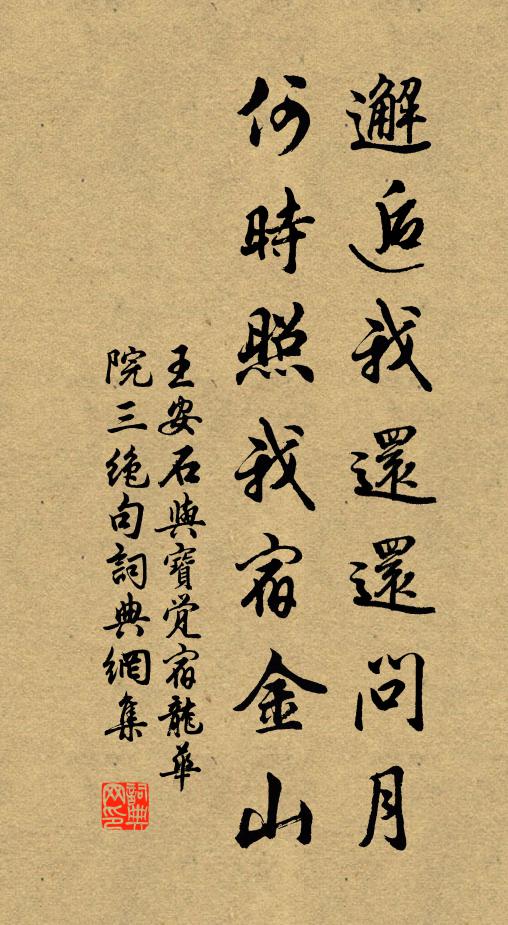 邂逅我還還問月
何時照我宿金山
王安石與寶覺宿龍華
院三絕句詞典網集
詞典网印